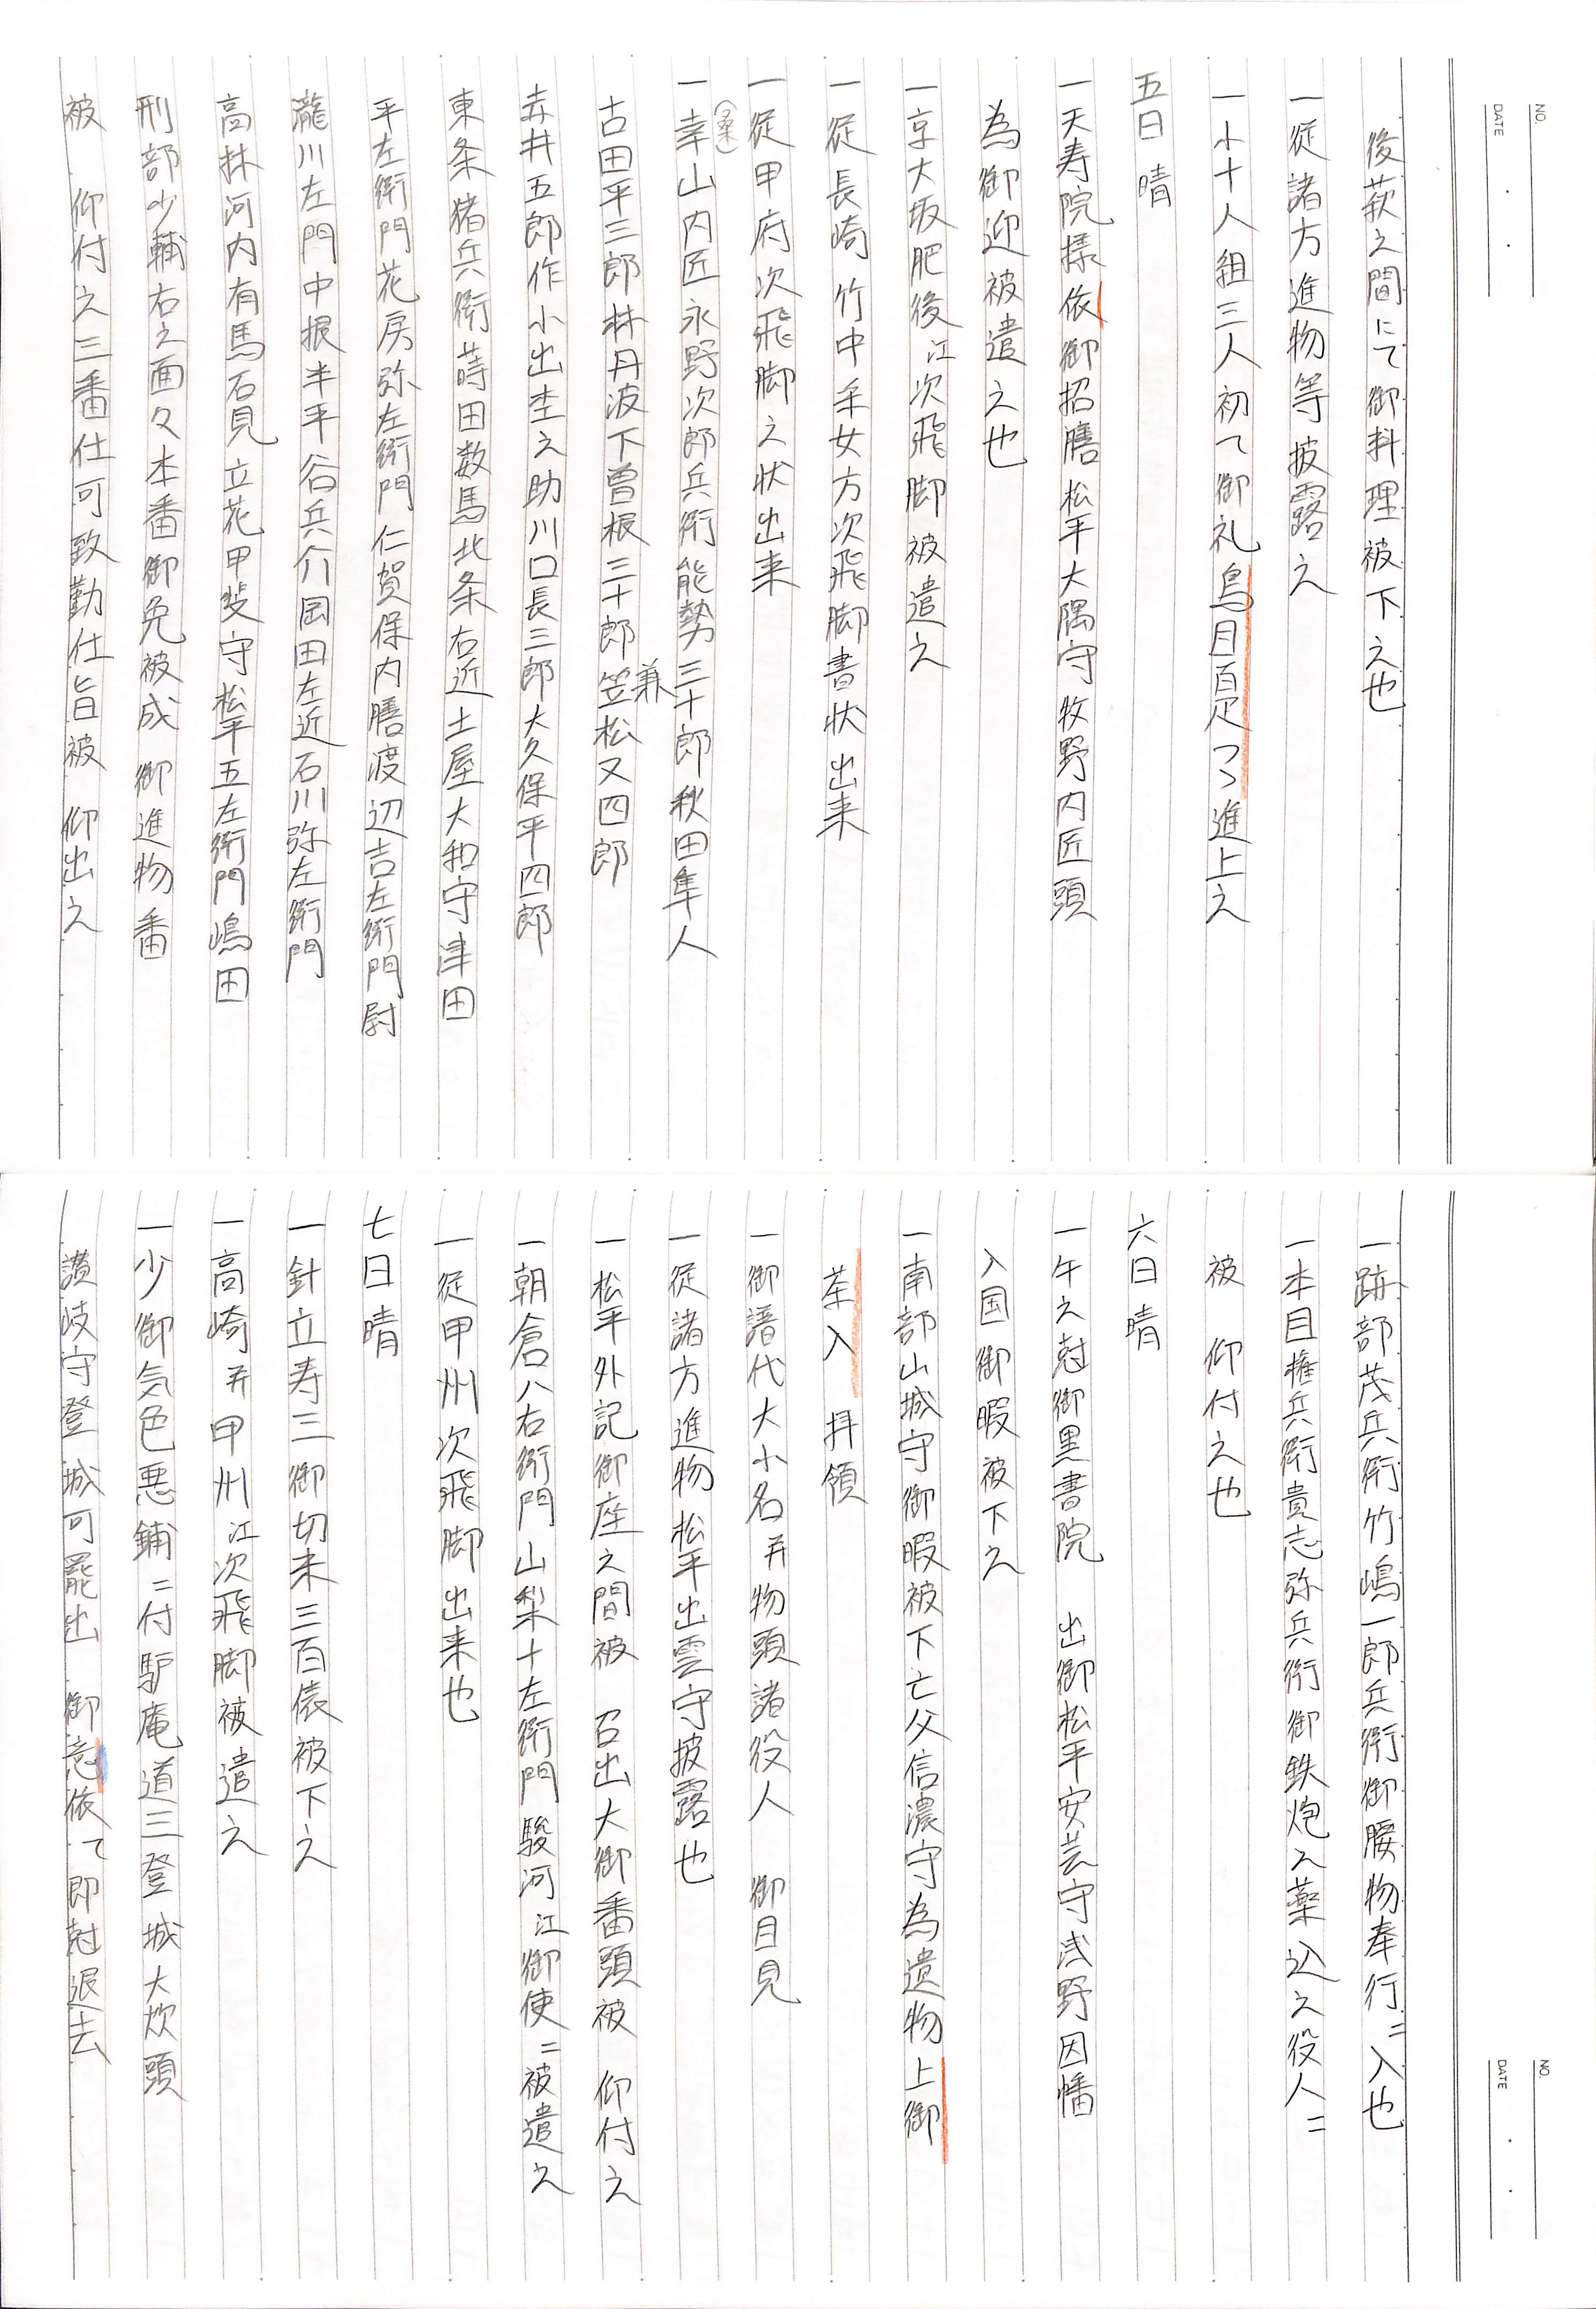 NO.
DATE
後萩之間にて御料理被下之也
一従諸方進物等披露之
一小十人組三人初て御礼鳥目百疋つゝ進上之
五日晴
一天寿院様依御招膳松平大隅守牧野内匠頭
為御迎被遣之也
一京大坂肥後江次飛脚被遣之
一従長崎竹中采女方次飛脚書状出来
一従甲府次飛脚之状出来
(桑)
一幸山内匠永野次郎兵衛能勢三十郎秋田隼人
古田平三郎林丹波下曽根三十郎笠松又四郎
兼
赤井五郎作小出杢之助川口長三郎大久保平四郎
東条猪兵衛蒔田数馬北条右近土屋大和守津田
平左衛門花房弥左衛門仁賀保内膳渡辺吉左衛門尉
瀧川左門中根半平谷兵介岡田左近石川弥左衛門
高林河内有馬石見立花甲斐守松平五左衛門嶋田
刑部少輔右之面々本番御免被成御進物番
被 仰付之三番仕可致勤仕旨被 仰出之
NO.
DATE
一跡部茂兵衛竹嶋一郎兵衛御腰物奉行ニ入也
一本目権兵衛貴志弥兵衛御鉄炮之薬込之役人ニ
被 仰付之也
六日晴
一午之尅御黒書院 出御松平安芸守浅野因幡
入国御暇被下之
一南部山城守御暇被下亡父信濃守為遺物上御
茶入 拝領
一御譜代大小名并物頭諸役人 御目見
一従諸方進物松平出雲守披露也
一松平外記御座之間被 召出大御番頭被 仰付之
一朝倉八右衛門山梨十左衛門駿河江御使ニ被遣之
一従甲州次飛脚出来也
七日晴
一針立寿三御切米三百俵被下之
一高崎并甲州江次飛脚被遣之
一少御気色悪鋪ニ付驴庵道三登城大炊頭
讃岐守登城可罷出 御意依て即尅退去